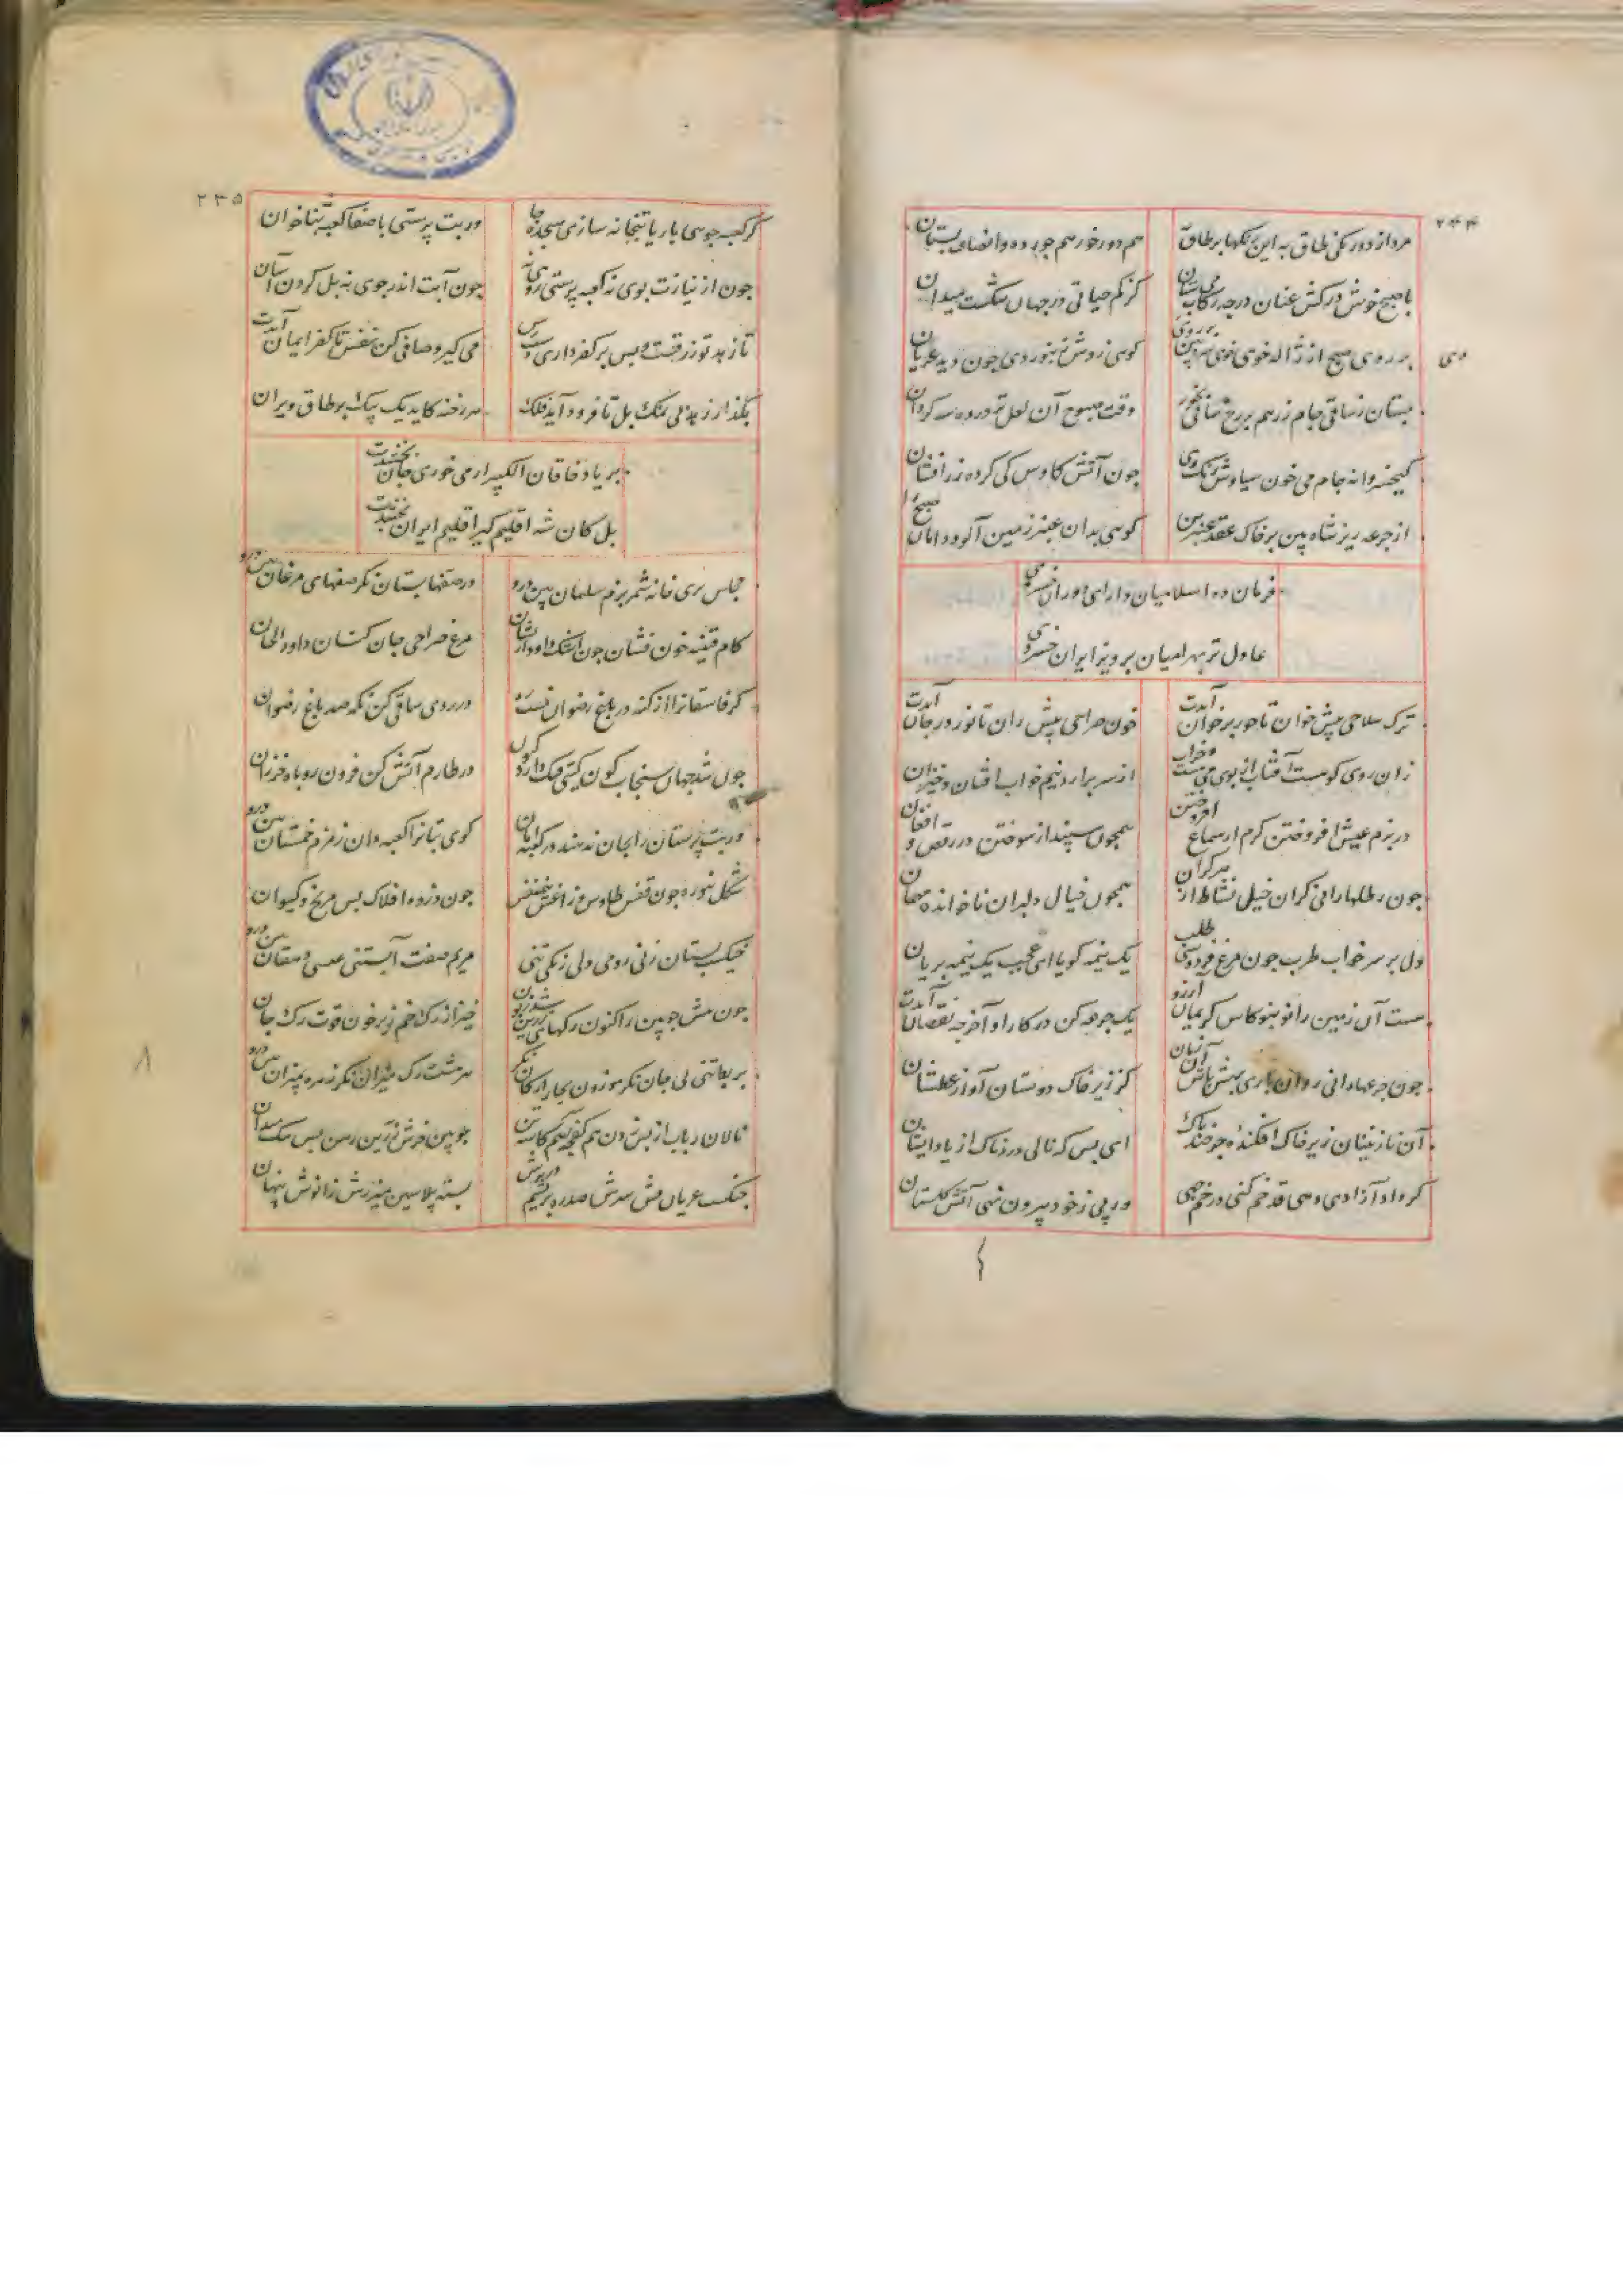 ۲۴۴
مرداز دور نکی طاق به این رنگها بر طاق
هم دور خور هم جور ده وانصاف بستان
با صبح خوش درکش عنان درجه رکاب می ستان
کز کم حیاتی در جهان شکست میدان
بر روی صبح از ژاله خوی خوی سرد بین بر روی وی
کوسی زوش نبوردی جون دید عریان
بستان ز ساقی جام زر هم بر رخ ساقی بخور
وقت صبوح آن لعل تر در ده سه کردان
کیخسروانه جام می خون سیاوش رنگ وی
جون آتش کاوس کی کرده زر افشان
از جرعه ریز شاه بین بر خاک عقد عنبرین
کوسی بدان عنبر زمین آلود دامان صبح را
فرمان ده اسلامیان دارای دوران خسروی
عادل تر بهرامیان پرویز ایران خسروی
ترک سلاحی پیش خوان تا حور بر خوان آیدت
خون صراحی پیش ران تا نور در جان آیدت
زان روی کو مست آفتاب از بوی می مست و خراب
از سر برارد نیم خواب افتان و خیزان
در بزم عیش افروختن کرم از سماع افروختن
همجون سپند از سوختن در رقص و افغان
جون رطلها رانی کران خیل نشاط از هر کران
همجون خیال دلبران ناخوانده مهمان
دل بر سر خواب طرب جون مرغ فردوسی طلب
یک نیمه کویا ای عجب یک نیمه بریان
مست آن زمین را نو بنو کاس کریمان آرزو
یک جرعه کن در کار او آخر جه نقصان آیدت
جون جرعها رانی روان باری بهش باش آن زمان
کز زیر خاک دوستان آواز عطشان
آن نازنینان زیر خاک افکنده جو خندند پاک
ای بس که نالی دردناک از یاد ایشان
کر داد آزادی دهی قد خم کنی در خم جهی
ور پی ز خود بیرون نهی آتش کلستان
۲۳۵
کر کعبه جوسی بار یا بتخانه سازی سجده جا
ور بت پرستی با صفا کعبه ثنا خوان
جون از نیازت بوی نه کعبه پرستی روی نه
جون آبت اندر جوی نه پل کردن آسان
تا زهد تو زرقست و بس بر کفر داری دسترس
می کیر و صافی کن نفس تا کفر ایمان آیدت
بکذار زهد بی نمک بل تا فرود آید فلک
هر رخنه کاید یک بیک بر طاق ویران
بر یاد خاقان الکبیر ار می خوری جان بخشدت
بل کان شه اقلیم کیر اقلیم ایران بخشدت
مجلس بری خانه شمر بزم سلمان بین درو
در صفها بستان نکر صفهای مرغان بین درو
کام قنینه خون فشان جون اشک داود از نشان
مرغ صراحی جان کسان داود الحان
کر فاسقانرا از کنه در باغ رضوان نیست ره
در روی ساقی کن نکه صد باغ رضوان
جون شد جهان سنجاب کون کیتی فنک دارد کنون
در طارم آتش کن فزون روباه خزران
ور بت پرستان را بجان ندهند در کعبه امان
کوی بتانرا کعبه دان زمزم خمستان بین درو
شکل تنوره جون قفس طاوس و زاغش هم نفس
جون ذروه افلاک بس مریخ و کیوان
خیکست بستان زنی رومی دلی زنکی تنی
مریم صفت آبستنی عیسی دهقان بین درو
جون مشش جوبین را کنون رکهای زرین شد زبون
خیز از رک خم زیر خون قوت رک جان
بربط تنی بی جان نکر موزون بچار ارکان نکر
هر هشت رک میزان نکر زهره بمیزان بین درو
نالان رباب از بس زدن هم کفجه هم کاسه تن
جوبین خرش زرین رسن بس تنک میدان
جنک است عریان وش سرش صدره بریشم در برش
بسته پلاسین میزرش زانوش پنهان